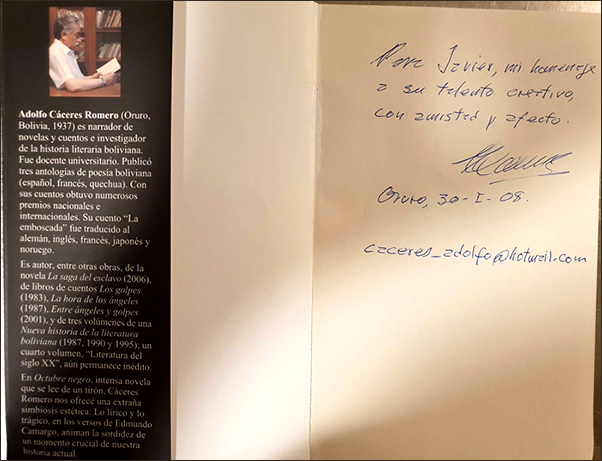 Adolfo Cáceres Romero (Oruro,
Bolivia, 1937) es narrador de
novelas y cuentos e investigador
de la historia literaria boliviana.
Fue docente universitario. Publicó
tres antologías de poesía boliviana
(español, francés, quechua). Con
sus cuentos obtuvo numerosos
premios nacionales e
internacionales. Su cuento “La
emboscada” fue traducido al
alemán, inglés, francés, japonés y
noruego.
Es autor, entre otras obras, de la
novela La saga del esclavo (2006),
de libros de cuentos Los golpes
(1983), La hora de los ángeles
(1987), Entre ángeles y golpes
(2001), y de tres volúmenes de una
Nueva historia de la literatura
boliviana (1987, 1990 y 1995); un
cuarto volumen, “Literatura del
siglo XX”, aún permanece inédito.
En Octubre negro, intensa novela
que se lee de un tirón, Cáceres
Romero nos ofrece una extraña
simbiosis estética: Lo lírico y lo
trágico, en los versos de Edmundo
Camargo, animan la sordidez de
un momento crucial de nuestra
historia actual.
Para Javier, mi homenaje
a su talento creativo,
con amistad y afecto.
Oruro, 30-I-08.
caceres_adolfo@hotmail.com